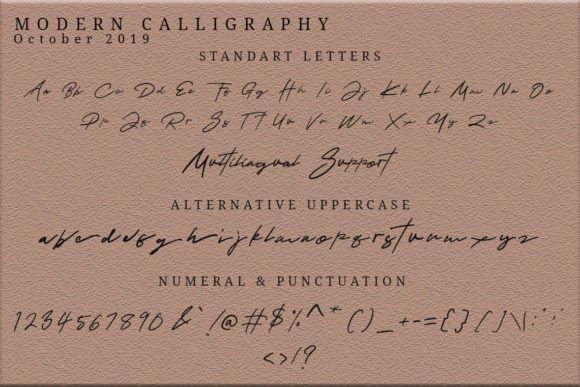 MODERN CALLIGRAPHY
October 2019
STANDART LETTERS
Aa Bb Cc Dd Ee Ff Gg Hh Ii Jj Kk Ll Mm Nn Oo
Pp Qq Rr Ss Tt Uu Vv Ww Xx Yy Zz
Multilingual Support
ALTERNATIVE UPPERCASE
a b c d e f g h i j k l m n o p q r s t u v w x y z
NUMERAL & PUNCTUATION
1234567890 &` !@#$%^*()_+-={}[]\|:";'
<>/?